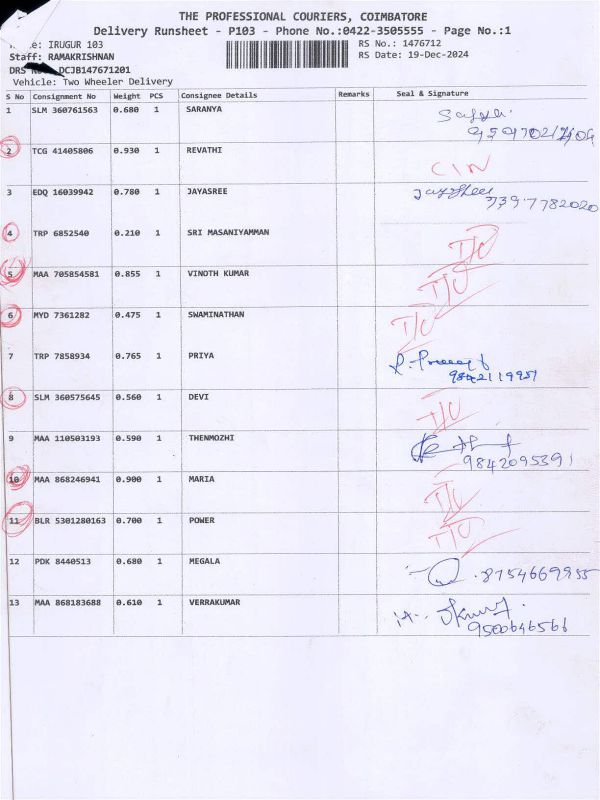 THE PROFESSIONAL COURIERS, COIMBATORE
Delivery Runsheet - P103 - Phone No.:0422-3505555 - Page No.:1
IRUGUR 103
RS No.: 1476712
Staff: RAMAKRISHNAN
RS Date: 19-Dec-2024
DRS DCJB147671201
Vehicle: Two Wheeler Delivery
S No Consignment No Weight PCS Consignee Details Remarks Seal & Signature
1 SLM 360761563 0.680 1 SARANYA
2 TCG 41405806 0.930 1 REVATHI CIN
3 EDQ 16039942 0.780 1 JAYASREE Jayshree
7397782020
4 TRP 6852540 0.210 1 SRI MASANIYAMMAN I/C
5 MAA 705854581 0.855 1 VINOTH KUMAR I/C
6 MYD 7361282 0.475 1 SWAMINATHAN I/C
7 TRP 7858934 0.765 1 PRIYA
9842119951
8 SLM 360575645 0.560 1 DEVI I/C
9 MAA 110503193 0.590 1 THENMOZHI
9842095391
10 MAA 868246941 0.900 1 MARIA I/C
11 BLR 5301280163 0.700 1 POWER I/C
12 PDK 8440513 0.680 1 MEGALA 8754669955
13 MAA 868183688 0.610 1 VERRAKUMAR
9500646566